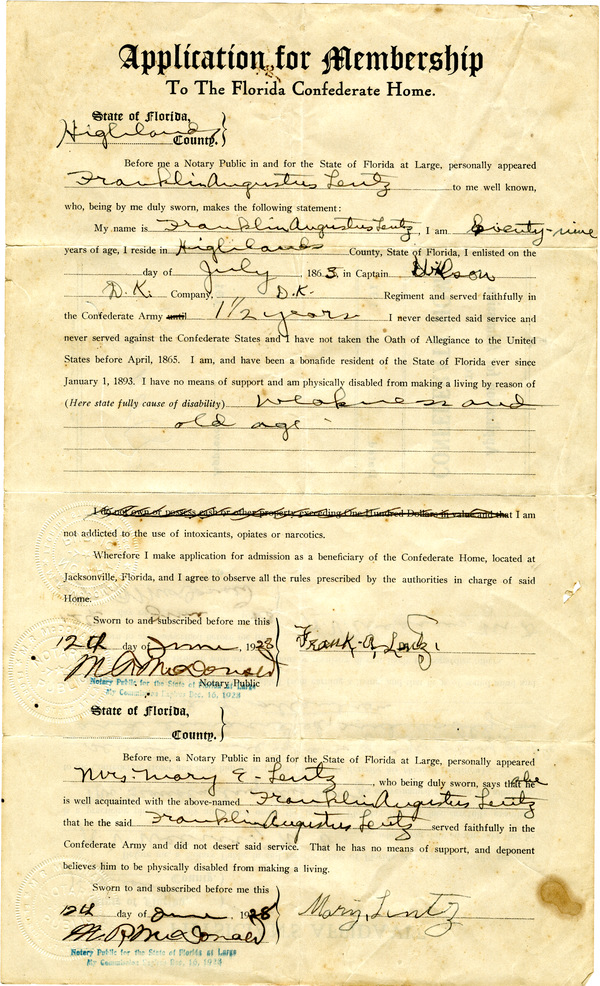 Application for Membership
To The Florida Confederate Home.
State of Florida,
Highland County.
Before me a Notary Public in and for the State of Florida at Large, personally appeared
Franklin Augustus Lentz to me well known,
who, being by me duly sworn, makes the following statement:
My name is Franklin Augustus Lentz, I am Seventy-nine
years of age, I reside in Highlands County, State of Florida, I enlisted on the
day of July, 1863, in Captain Wilson
D.K. Company, D.K. Regiment and served faithfully in
the Confederate Army until 1 1/2 years I never deserted said service and
never served against the Confederate States and I have not taken the Oath of Allegiance to the United
States before April, 1865. I am, and have been a bonafide resident of the State of Florida ever since
January 1, 1893. I have no means of support and am physically disabled from making a living by reason of
(Here state fully cause of disability) weakness and
old age
I do not own or possess cash or other property exceeding One Hundred Dollars in value and that I am
not addicted to the use of intoxicants, opiates or narcotics.
Wherefore I make application for admission as a beneficiary of the Confederate Home, located at
Jacksonville, Florida, and I agree to observe all the rules prescribed by the authorities in charge of said
Home.
Sworn to and subscribed before me this
12th day of June, 1928 Frank. A. Lentz.
M.R. McDonald
Notary Public for the State of Florida at Large
Notary Public
My Commission Expires Dec. 16, 1928
State of Florida,
County.
Before me, a Notary Public in and for the State of Florida at Large, personally appeared
Mrs. Mary E. Lentz, who being duly sworn, says that she he
is well acquainted with the above-named Franklin Augustus Lentz
that he the said Franklin Augustus Lentz served faithfully in the
Confederate Army and did not desert said service. That he has no means of support, and deponent
believes him to be physically disabled from making a living.
Sworn to and subscribed before me this
12th day of June, 1928 Mary, Lentz
M.R. McDonald
Notary Public for the State of Florida at Large
My Commission Expires Dec. 16, 1928